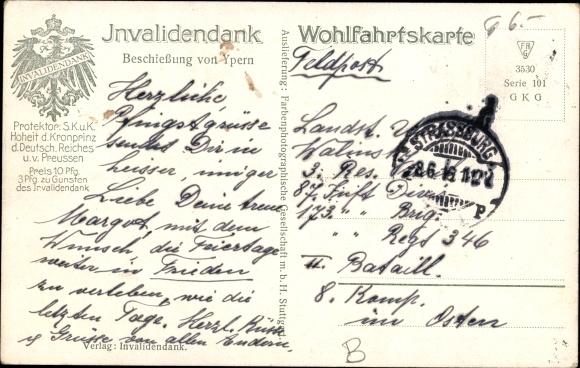 Invalidendank
Wohlfahrtskarte
INVALIDENDANK
Beschießung von Ypern
Feldpost
6.-
3530
Serie 101
G K G
Protektor: S.K.u.K.
Hoheit d. Kronprinz
d. Deutsch. Reiches
u.v. Preussen
Preis 10 Pfg.
3 Pfg. zu Gunsten
des Invalidendank
Herzliche
Pfingstgrüsse
sendet Dir in
heisser, inniger
Liebe Deine treue
Margot, mit dem
Wunsch, die Feiertage
weiter in Frieden
zu verleben, wie die
letzten Tage. Herzl. Küsse
Grüsse von allen
Verlag: Invalidendank.
Auslieferung: Farbenphotographische Gesellschaft m. b. H. Stuttgart
STRASSBURG
Landst.
3. Res.
87. Inft Div
173. " " Brig.
" " Regt 346
II. Bataill.
8. Komp.
im Osten
B